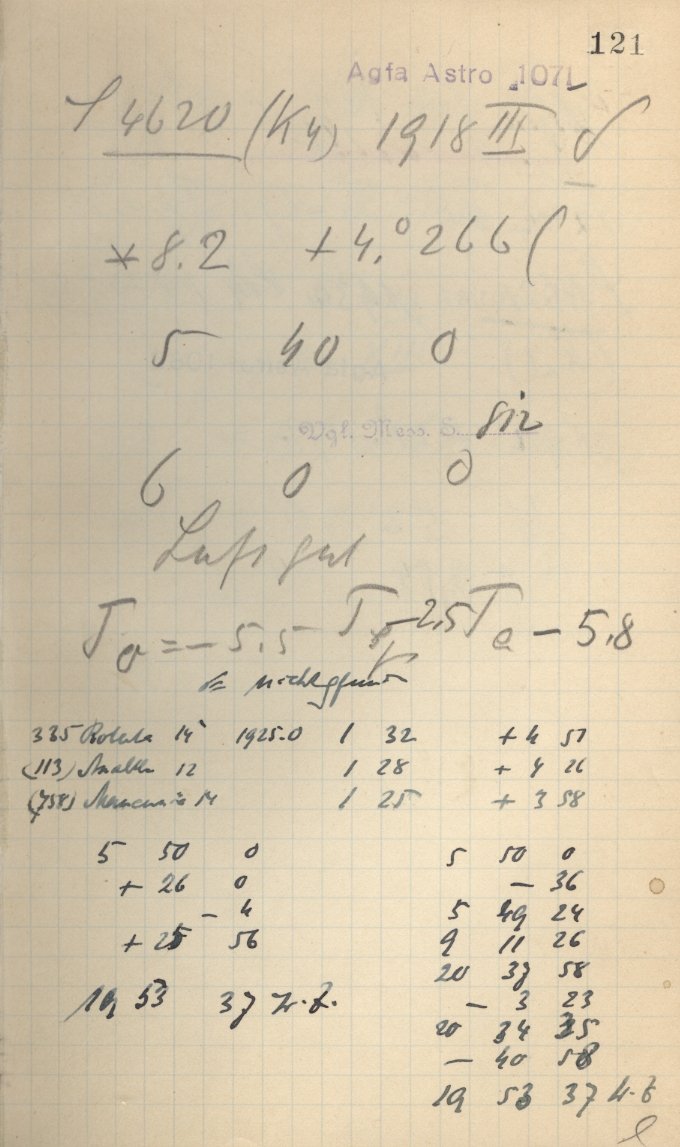 121
Agfa Astro 1071
4620 (K4) 1918 III
* 8.2 + 4.°266 (
5 40 0
Vgl. Mess. S.
6 0 0
Luft gut
= - 5.5 - 2,5 - 5,8
335 Roberta 14 1925.0 1 32 + 4 51
(113) Amalthea 12 1 28 + 4 26
(758) Mancunia 14 1 25 + 3 58
5 50 0 5 50 0
+ 26 0 - 36
- 4 5 49 24
+ 25 56 9 11 26
20 37 58
19 53 37 - 3 23
20 34 35
- 40 58
19 53 37